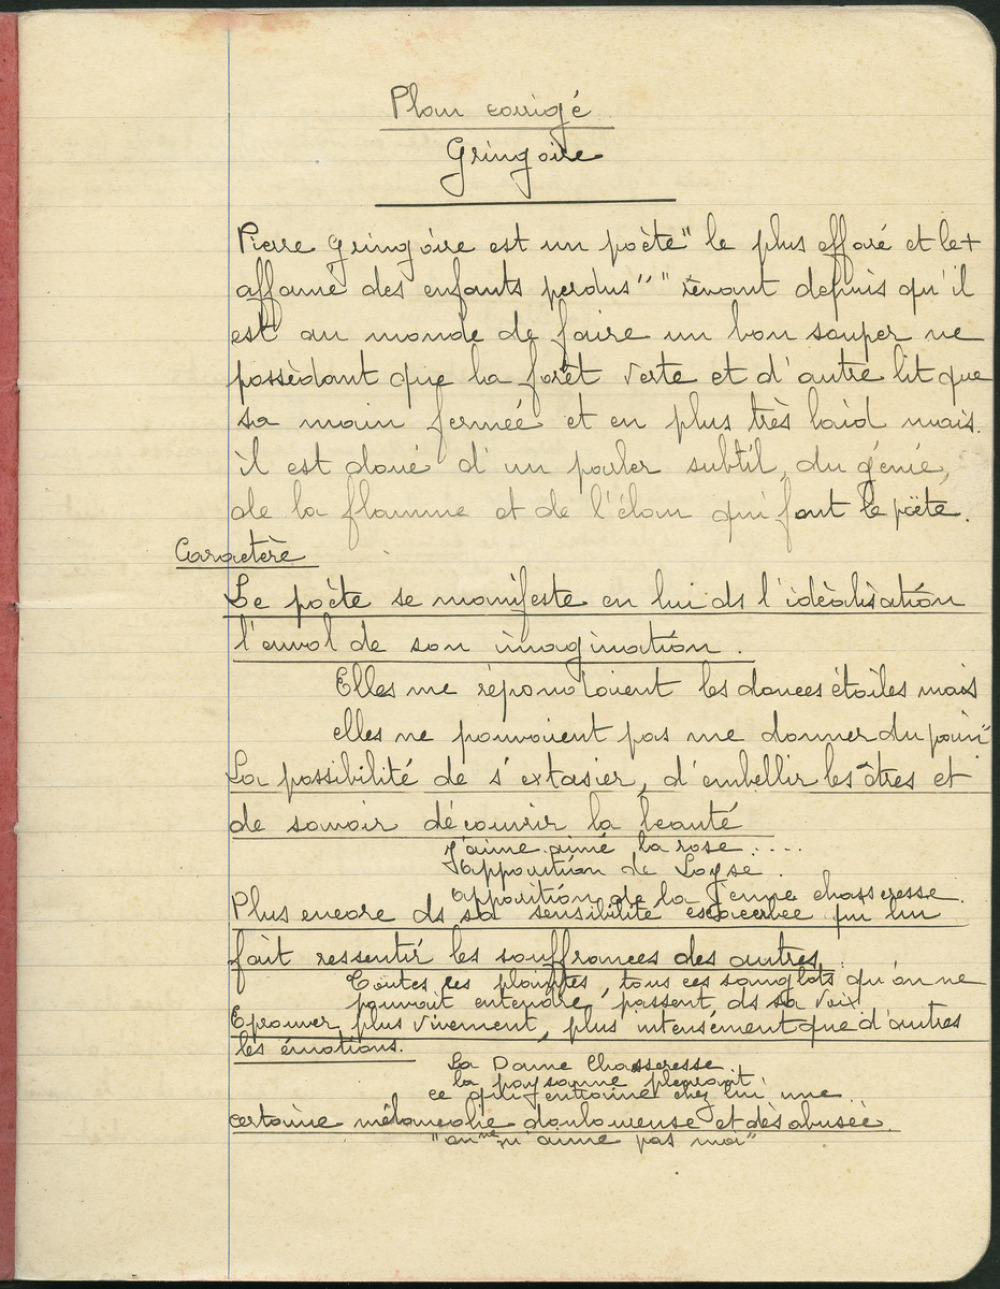 Plan corrigé
Gringoire
Pierre Gringoire est un poète " le plus effaré et le +
affamé des enfants perdus" " rêvant depuis qu'il
est au monde de faire un bon souper ne
possèdant que la forêt verte et d'autre lit que
sa main fermée et en plus très laid mais
il est doué d'un parler subtil, du génie,
de la flamme et de l'élan qui font le poëte.
Caractère
Le poète se manifeste en lui ds l'idèalisation
l'envol de son imagination.
Elles me répondaient les douces étoiles mais
elles ne pouvaient pas me donner du pain"
La possibilité de s'extasier, d'embellir les êtres et
de savoir découvrir la beauté
J'aime aimé la rose ....
apparition de Loyse.
apparition de la jeune chasseresse.
Plus encore ds sa sensibilité exacerbée qui lui
fait ressentir les souffrances des autres
Toutes ces plaintes, tous ces sanglots qu'on ne
pouvait entendre passent ds sa voix.
Eprouver plus vivement, plus intensément que d'autres
les émotions.
La Dame Chasseresse.
la paysanne pleurant
ce qui entraine chez lui une
certaine mélancolie douloureuse et dèsabusée.
"on ne m'aime pas moi"